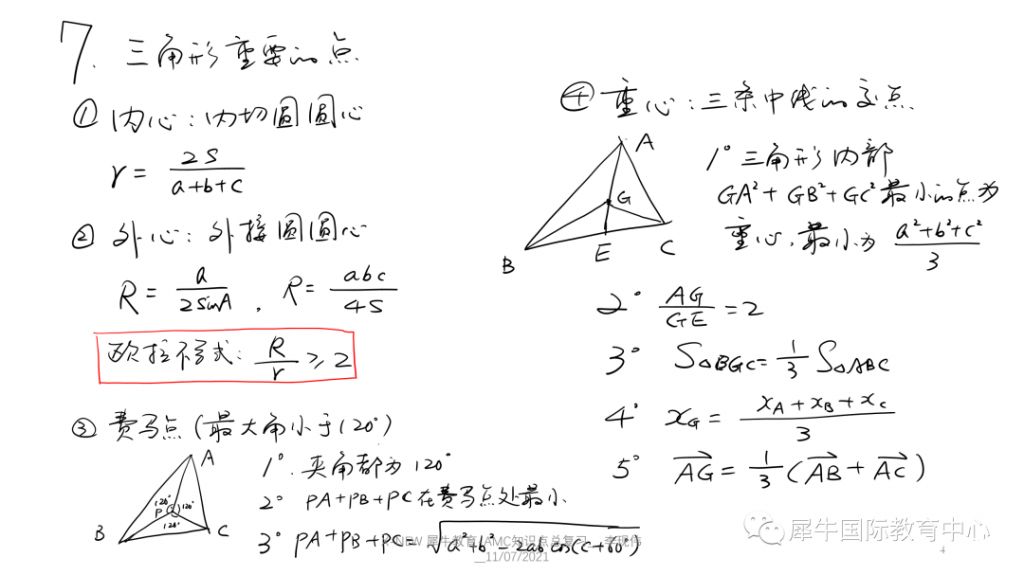 7. 三角形重要的点
① 内心：内切圆圆心
r = 2S / (a+b+c)
② 外心：外接圆圆心
R = a / 2sinA , R = abc / 4S
欧拉不等式: R/r ≥ 2
③ 费马点 (最大角小于120°)
A
B
C
P
120°
120°
120°
1° 夹角都为120°
2° PA+PB+PC在费马点处最小
3° PA+PB+PC = √(a²+b²-2ab cos(C+60°))
④ 重心：三条中线的交点
A
G
B
E
C
1° 三角形内部
GA²+GB²+GC²最小的点为
重心, 最小为 (a²+b²+c²) / 3
2° AG/GE = 2
3° S△BGC = 1/3 S△ABC
4° xG = (xA+xB+xC) / 3
5° →AG = 1/3 (→AB + →AC)
NEW 犀牛教育/AMC知识点总复习
11/07/2021
犀牛国际教育中心
4